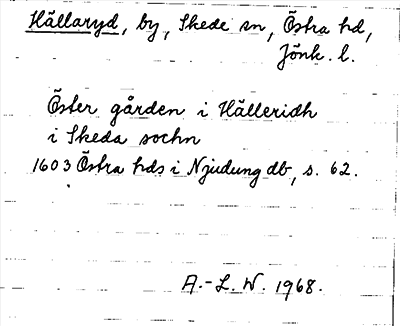 Hällaryd, by, Skede sn, Östra hd,
Jönk. l.
Öster gården i Hälleridh
i Skeda sochn
1603 Östra hds i Njudung db, s. 62.
A.-L. W. 1968.